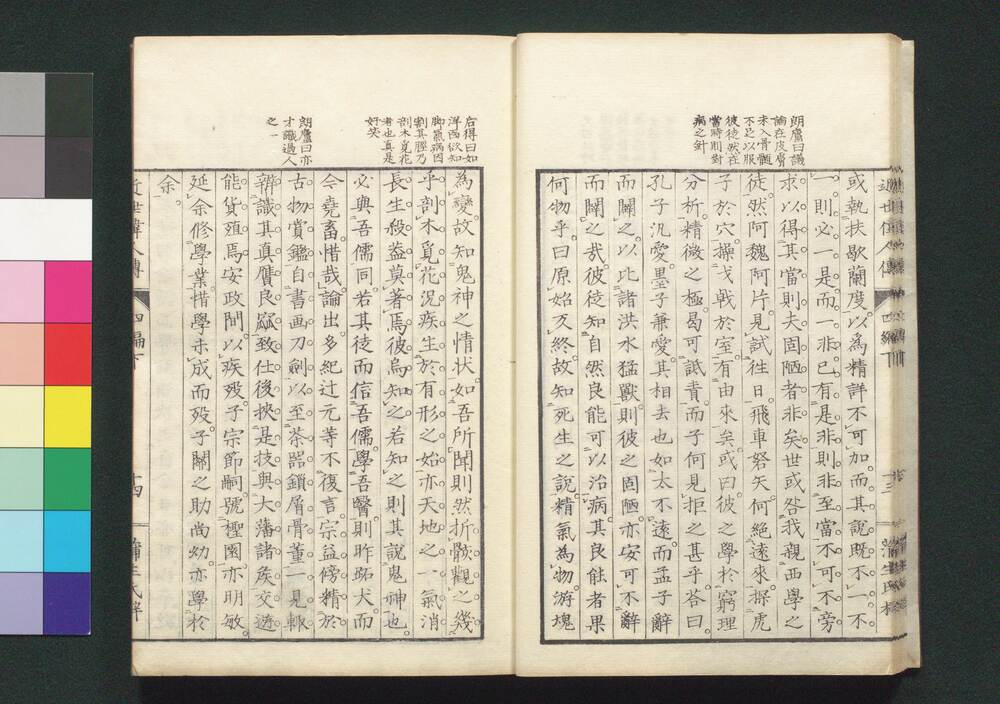 朗廬曰議
論在皮膚
未入骨髓
不足以服
彼徒然在
當時則對
病之針
或執扶歇蘭度以為精詳不可加而其説既不一不
一則必一是而一非已有是非則非至當不可不旁
求以得其當則夫固陋者非矣世或咎我觀西學之
徒然阿魏阿片見試往日飛車弩矢何絶遠來探虎
子於穴操戈戰於室有由來矣或曰彼之學於窮理
分析精微之極曷可詆責而子何見拒之甚乎答曰
孔子汎愛墨子兼愛其相去也如太不遠而孟子辭
而闢之以比諸洪水猛獸則彼之固陋亦安可不辭
而闢之哉彼徒知自然良能可以治病其良能者果
何物乎曰原始及終故知死生之說精氣為物游塊
后得曰如
洋西欲知
脚氣病因
割其脛乃
剖木覓花
者也真是
好笑
朗廬曰亦
才識過人
之一
為變故知鬼神之情状如吾所聞則然折骸觀之幾
乎剖木覓花況疾生於有形之始亦天地之一氣消
長生殺蓋莫著焉彼烏知之若知之則其説鬼神也
必與吾儒同若其徒而信吾儒學吾醫則昨跖犬而
今堯畜惜哉論出多紀辻元等不復言宗益傍精於
古物賞鑑自書画刀劍以至茶器鎖屑骨董一見輙
辨識其真贋良窳致仕後挾是技與大藩諸矦交遊
能貨殖焉安政間以疾殁子宗節嗣號樫園亦明敏
延余修學業惜學未成而殁子關之助尚幼亦學於
余
近世偉人傳
四編下
十四
蒲生氏梓